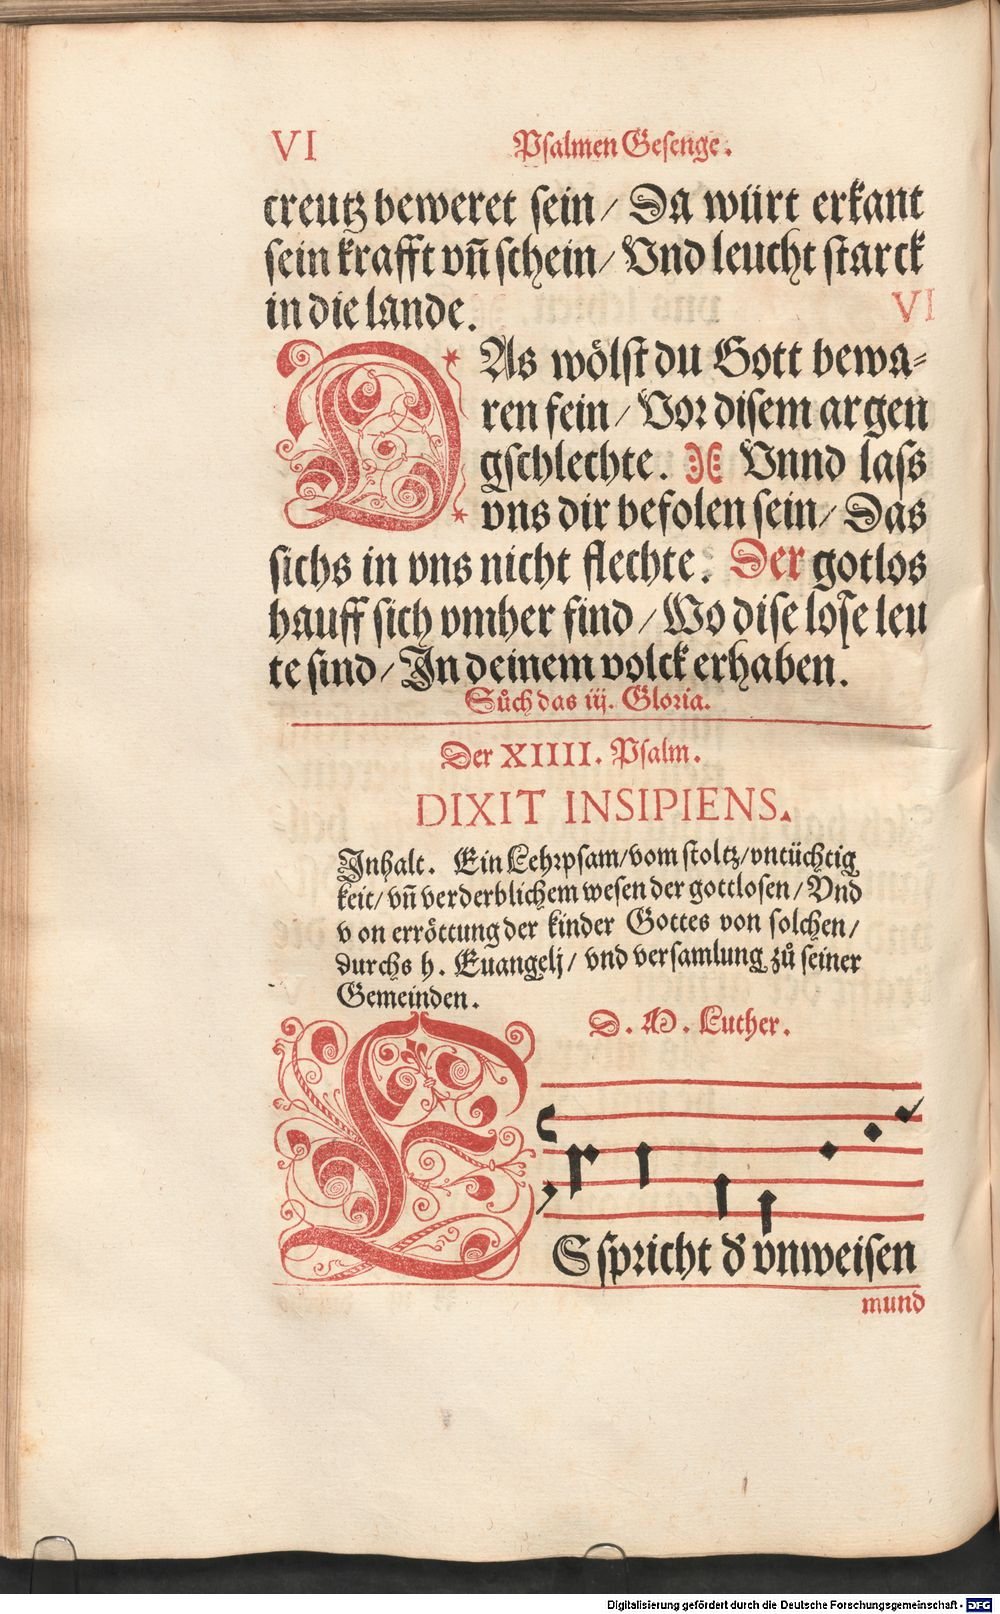 VI
Psalmen Gesenge.
creutz beweret sein/ Da würt erkant
sein krafft vn̄ schein/ Vnd leucht starck
in die lande.
VI
DAs wölst du Gott bewa⸗
ren fein/ Vor disem argen
gschlechte. Vnnd lass
vns dir befolen sein/ Das
sichs in vns nicht flechte. Der gotlos
hauff sich vmher find/ Wo dise lose leu
te sind/ In deinem volck erhaben.
Sůch das iij. Gloria.
Der XIIII. Psalm.
DIXIT INSIPIENS.
Inhalt. Ein Lehrpsam/ vom stoltz/ vntüchtig
keit/ vn̄ verderblichem wesen der gottlosen/ Vnd
von erröttung der kinder Gottes von solchen/
durchs h. Euangelj/ vnd versamlung zů seiner
Gemeinden.
D. M. Luther.
ES spricht d̕ vnweisen
mund
Digitalisierung gefördert durch die Deutsche Forschungsgemeinschaft - DFG